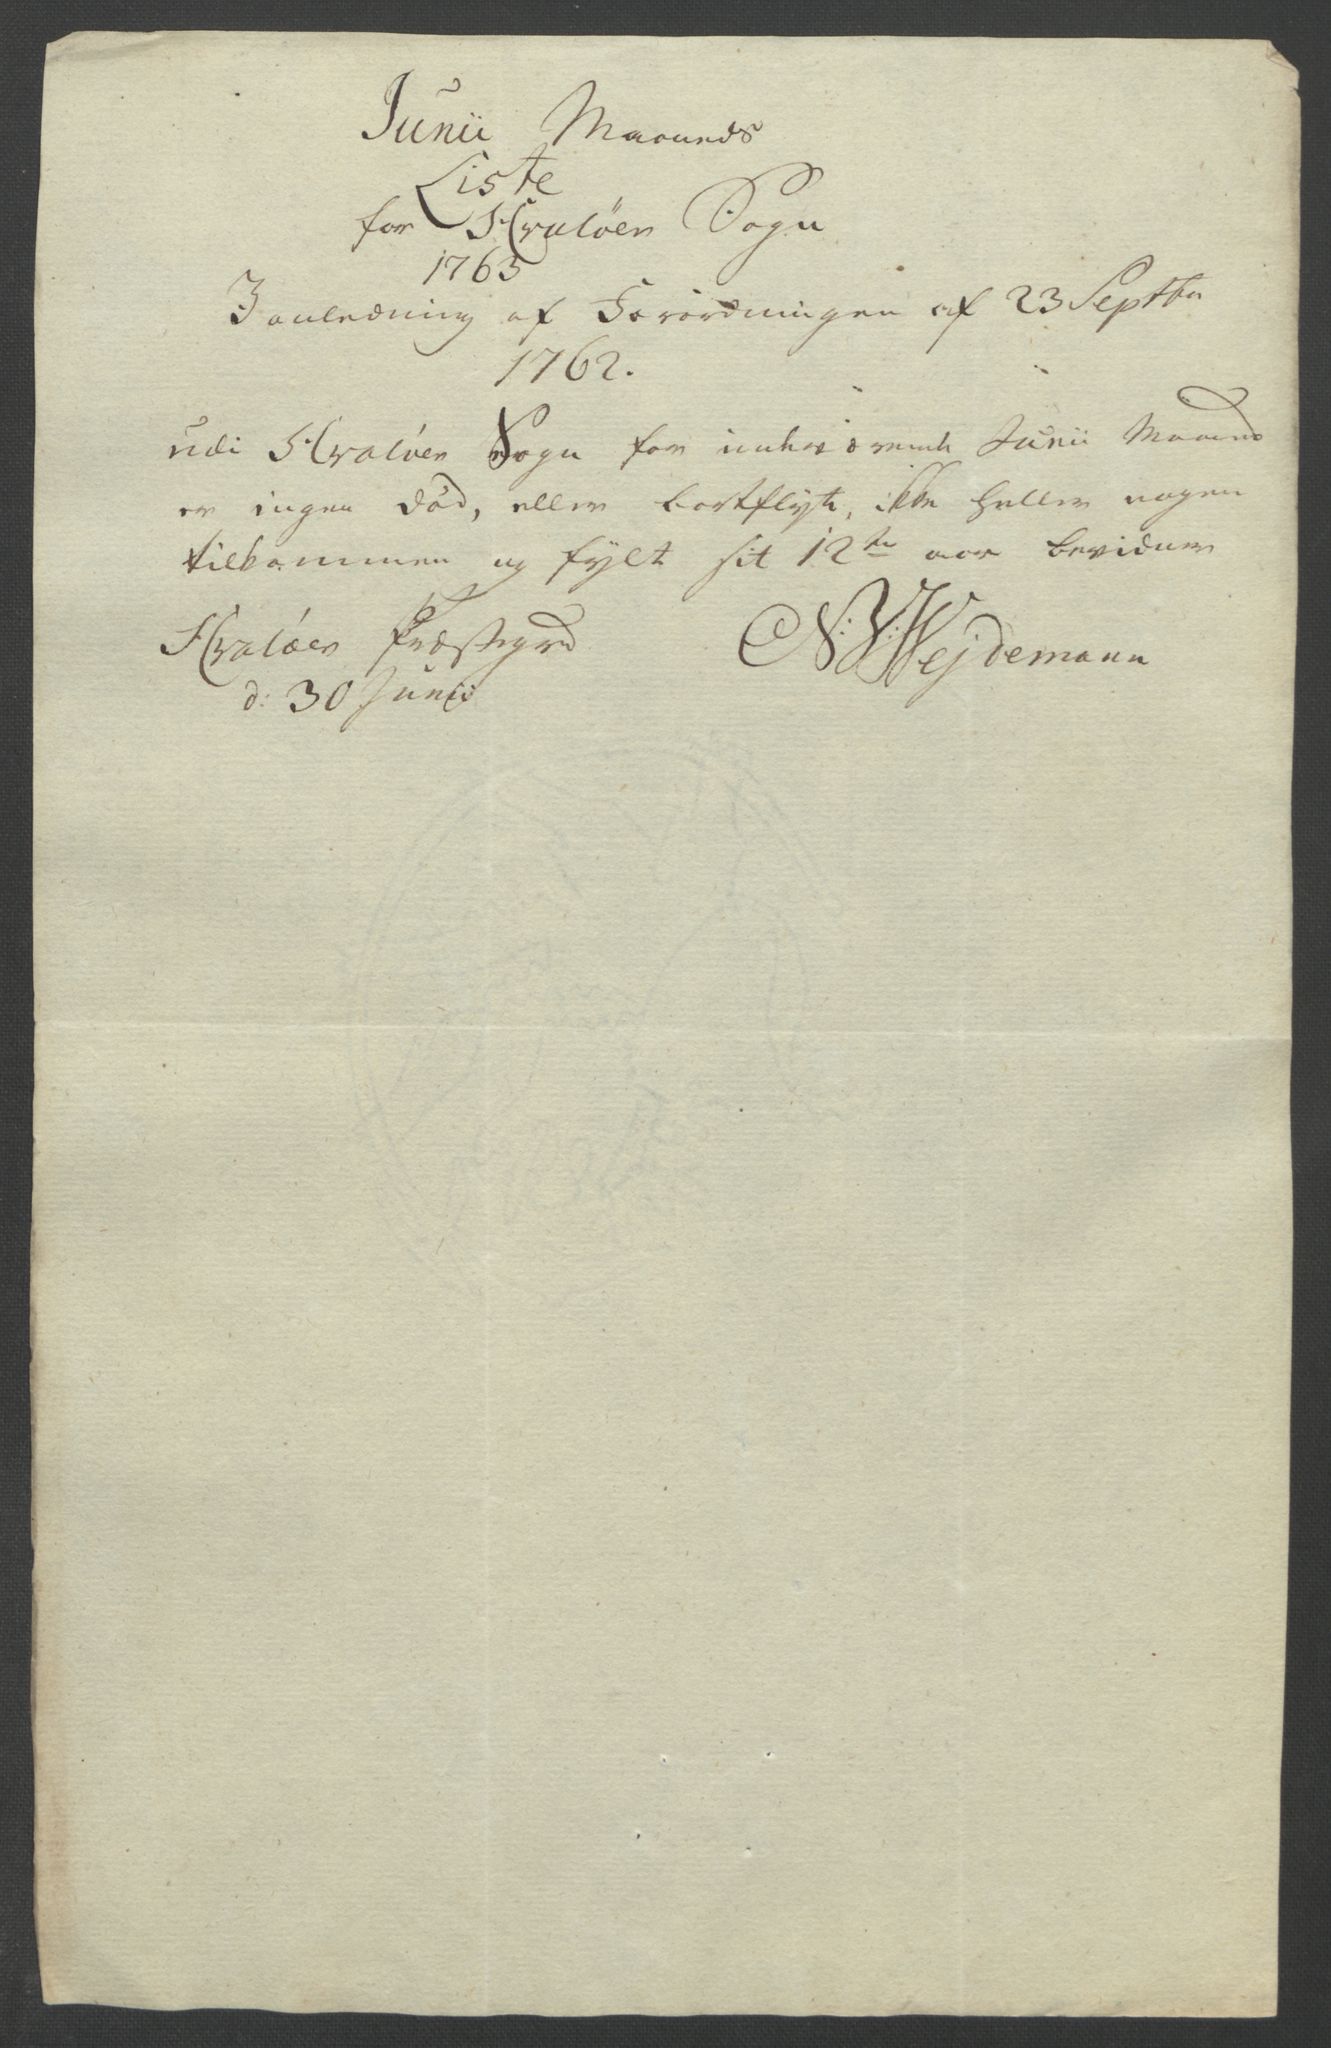 Junii Maaneds
Liste
for Hvaløer Sogn
1765
I anledning af Forordningen af 23 Septbr
1762.
udi Hvaløer Sogn for indeværende Junii Maaned
er ingen død, eller bortflyt, ikke heller nogen
tilkommen og fylt sit 12te aar bevidner
Hvaløer Præstegrd
d: 30 Junii
N: V: Wejdemann